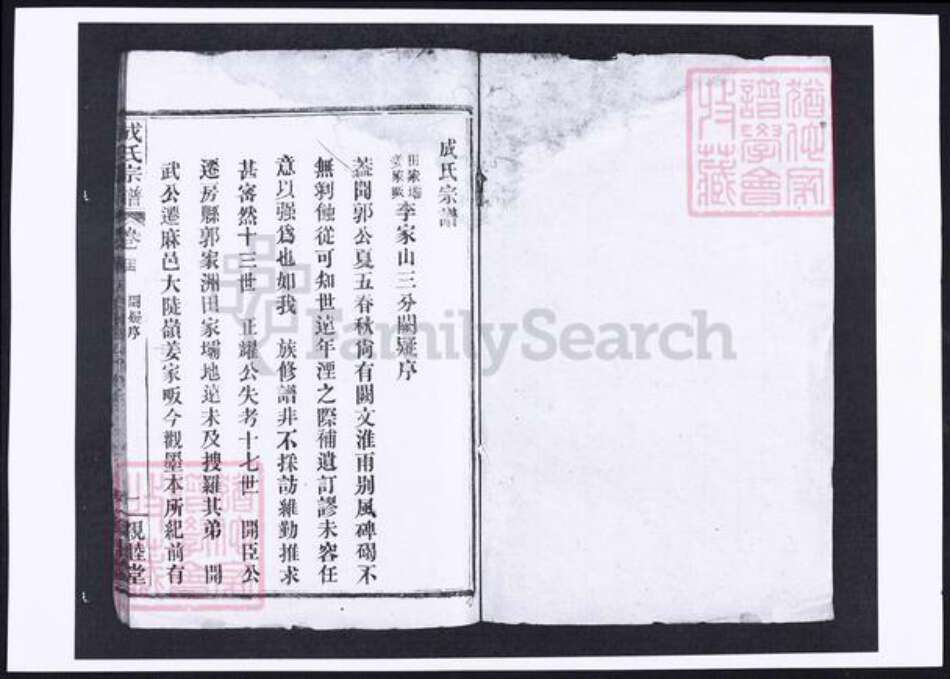 成氏宗譜
田家塆
姜家畈
李家山三分闕疑序
蓋聞郭公夏五春秋尙有闕文淮雨別風碑碣不
無剝蝕從可知世遠年湮之際補遺訂謬未容任
意以强爲也如我 族修譜非不採訪維勤推求
甚審然十三世 正耀公失考十七世 開臣公
遷房縣郭家洲田家塲地遠未及搜羅其弟 開
武公遷麻邑大陡嶺姜家畈今觀墨本所紀前有
成氏宗譜 卷一 闕疑序 一 親睦堂
猶他家譜學會收藏
FamilySearch